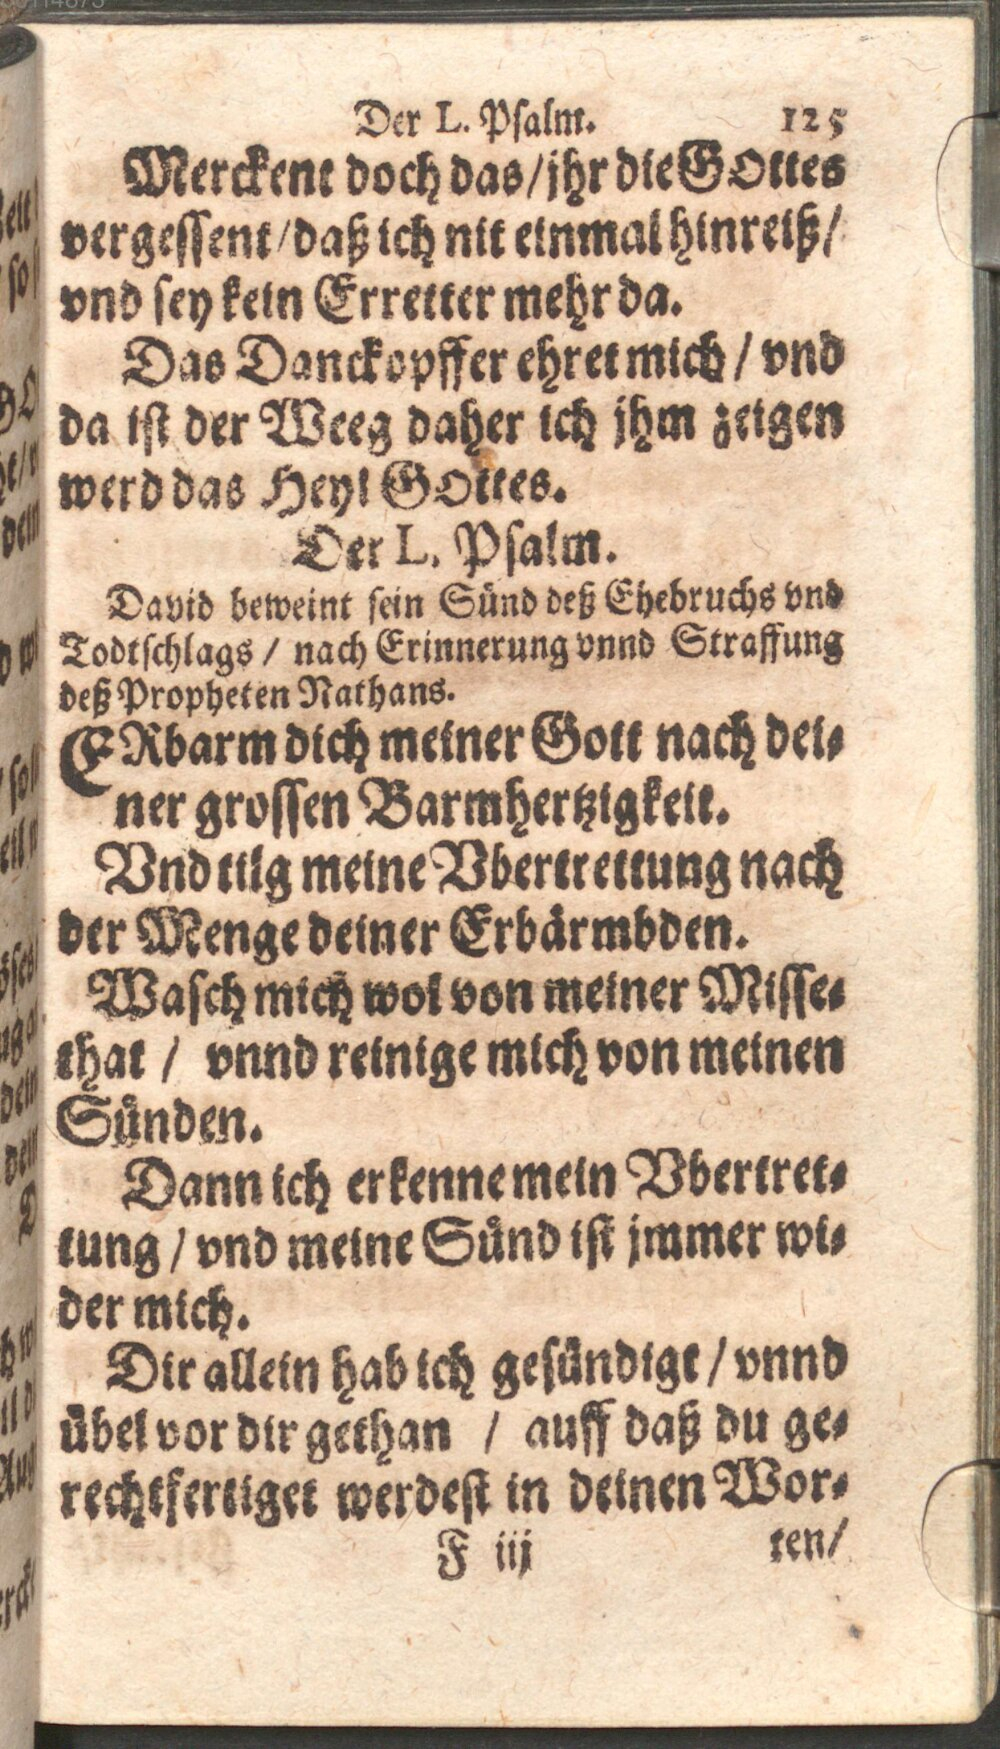 Der L. Psalm. 125
Merckent doch das/jhr die GOttes
vergessent/daß ich nit einmal hinreiß/
vnd sey kein Erretter mehr da.
Das Danckopffer ehret mich / vnd
da ist der Weeg daher ich jhm zeigen
werd das Heyl GOttes.
Der L. Psalm.
David beweint sein Sünd deß Ehebruchs vnd
Todtschlags / nach Erinnerung vnnd Straffung
deß Propheten Nathans.
ERbarm dich meiner Gott nach dei-
ner grossen Barmhertzigkeit.
Vnd tilg meine Vbertrettung nach
der Menge deiner Erbärmbden.
Wasch mich wol von meiner Misse-
that / vnnd reinige mich von meinen
Sünden.
Dann ich erkenne mein Vbertret-
tung / vnd meine Sünd ist jmmer wi-
der mich.
Dir allein hab ich gesündigt / vnnd
übel vor dir gethan / auff daß du ge-
rechtfertiget werdest in deinen Wor-
F iij ten/